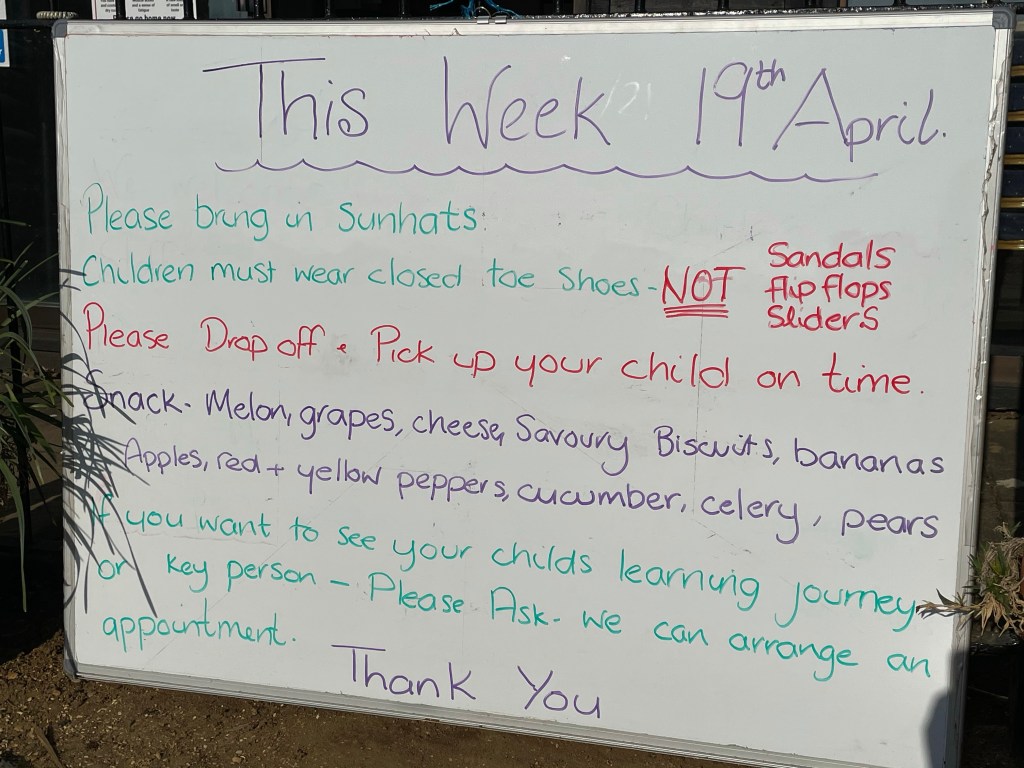 This Week 19th April.
Please bring in Sunhats.
Children must wear closed toe Shoes - NOT Sandals
flip flops
Sliders
Please Drop off & Pick up your child on time.
Snack - Melon, grapes, cheese, Savoury Biscuits, bananas
Apples, red + yellow peppers, cucumber, celery, pears
If you want to see your childs learning journey
or key person - Please Ask. we can arrange an
appointment.
Thank You